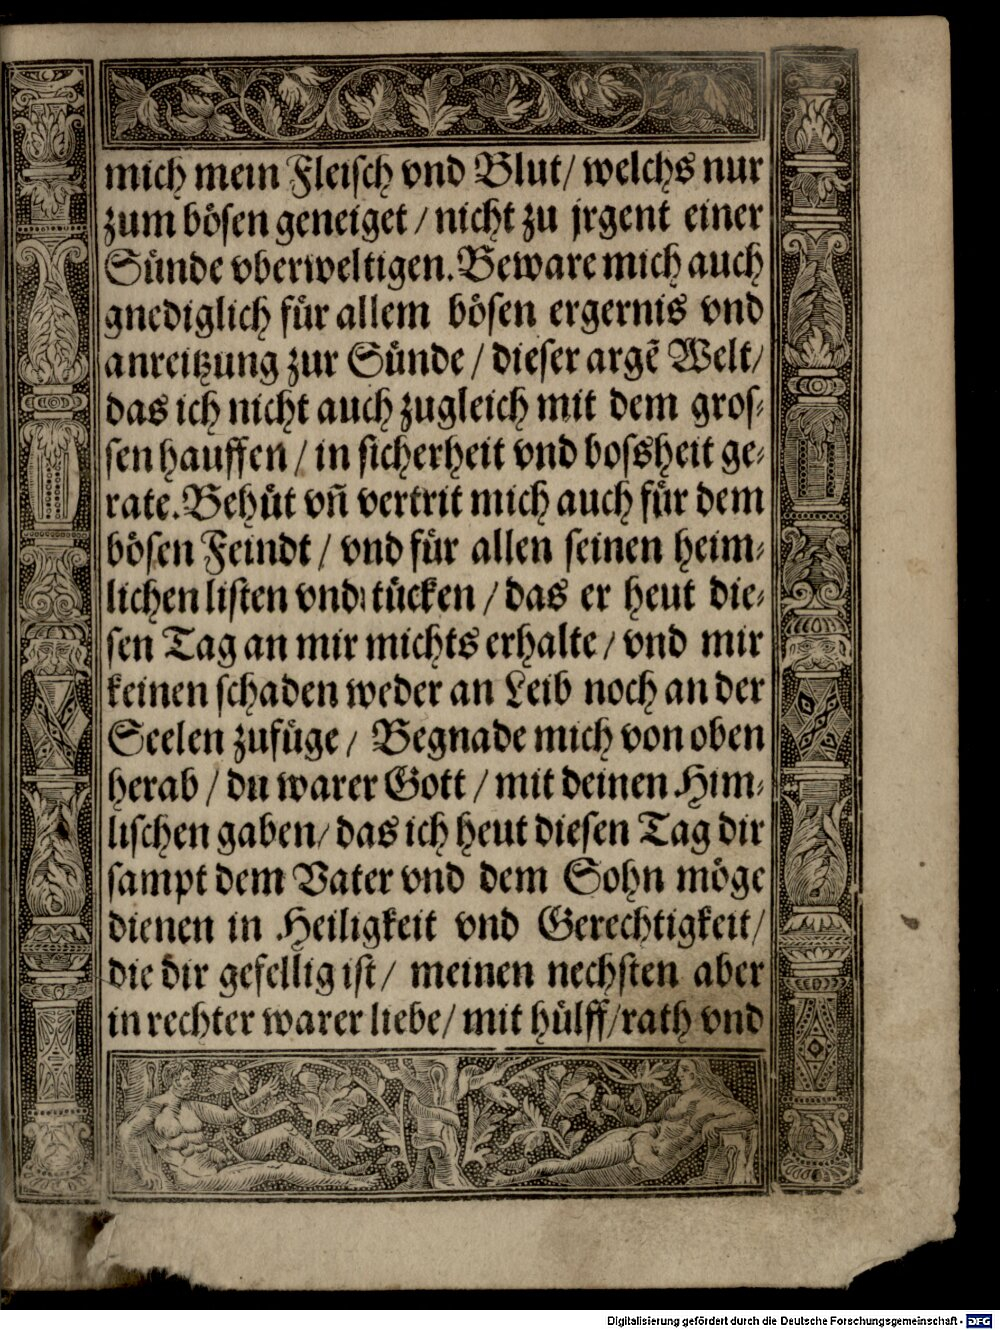 mich mein Fleisch vnd Blut/ welchs nur
zum bösen geneiget / nicht zu jrgent einer
Sünde vberweltigen. Beware mich auch
gnediglich für allem bösen ergernis vnd
anreitzung zur Sünde / dieser argẽ Welt/
das ich nicht auch zugleich mit dem gros⸗
sen hauffen / in sicherheit vnd bossheit ge⸗
rate. Behüt vñ vertrit mich auch für dem
bösen Feindt / vnd für allen seinen heim⸗
lichen listen vnd tücken / das er heut die⸗
sen Tag an mir michts erhalte / vnd mir
keinen schaden weder an Leib noch an der
Seelen zufüge / Begnade mich von oben
herab / du warer Gott / mit deinen Him⸗
lischen gaben/ das ich heut diesen Tag dir
sampt dem Vater vnd dem Sohn möge
dienen in Heiligkeit vnd Gerechtigkeit/
die dir gefellig ist/ meinen nechsten aber
in rechter warer liebe/ mit hülff/rath vnd
Digitalisierung gefördert durch die Deutsche Forschungsgemeinschaft - DFG